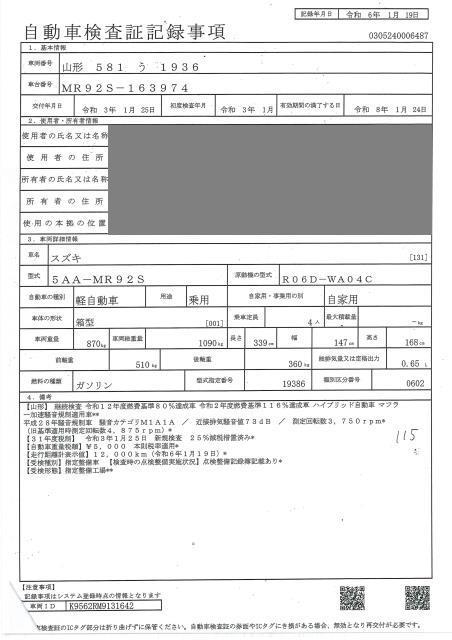 記録年月日 令和 6年 1月 19日
自動車検査証記録事項
0305240006487
1．基本情報
車両番号 山形 581 う 1936
車台番号 MR92S－163974
交付年月日 令和 3年 1月 25日 初度検査年月 令和 3年 1月 有効期間の満了する日 令和 8年 1月 24日
2．使用者・所有者情報
使用者の氏名又は名称
使用者の住所
所有者の氏名又は名称
所有者の住所
使用の本拠の位置
3．車両詳細情報
車名 スズキ [131]
型式 5AA－MR92S 原動機の型式 R06D－WA04C
自動車の種別 軽自動車 用途 乗用 自家用・事業用の別 自家用
車体の形状 箱型 [001] 乗車定員 4人 最大積載量 －kg
車両重量 870kg 車両総重量 1090kg 長さ 339cm 幅 147cm 高さ 168cm
前軸重 510kg 後軸重 360kg 総排気量又は定格出力 0.65 L
燃料の種類 ガソリン 型式指定番号 19386 類別区分番号 0602
4．備考
【山形】 継続検査 令和12年度燃費基準80％達成車 令和2年度燃費基準116％達成車 ハイブリッド自動車 マフラ
ー加速騒音規制適用車**
平成28年騒音規制車 騒音カテゴリM1A1A ／ 近接排気騒音値73dB ／ 測定回転数3，750rpm**
（旧基準適用時測定回転数4，875rpm）*
【31年度税額】 令和3年1月25日 新規検査 25％減税措置済み*
【自動車重量税額】¥5，000 本則税率適用*
【走行距離計表示値】12，000km（令和6年1月19日）*
【受検種別】指定整備車 【検査時の点検整備実施状況】点検整備記録簿記載あり*
【受検形態】指定整備工場**
115
【注意事項】
記録事項はシステム登録時点の情報となります
車両ID K9562RM9131642
検査証のICタグ部分は折り曲げずに保管ください。自動車検査証の券面やICタグにき損がある場合、無効となり再交付が必要です。